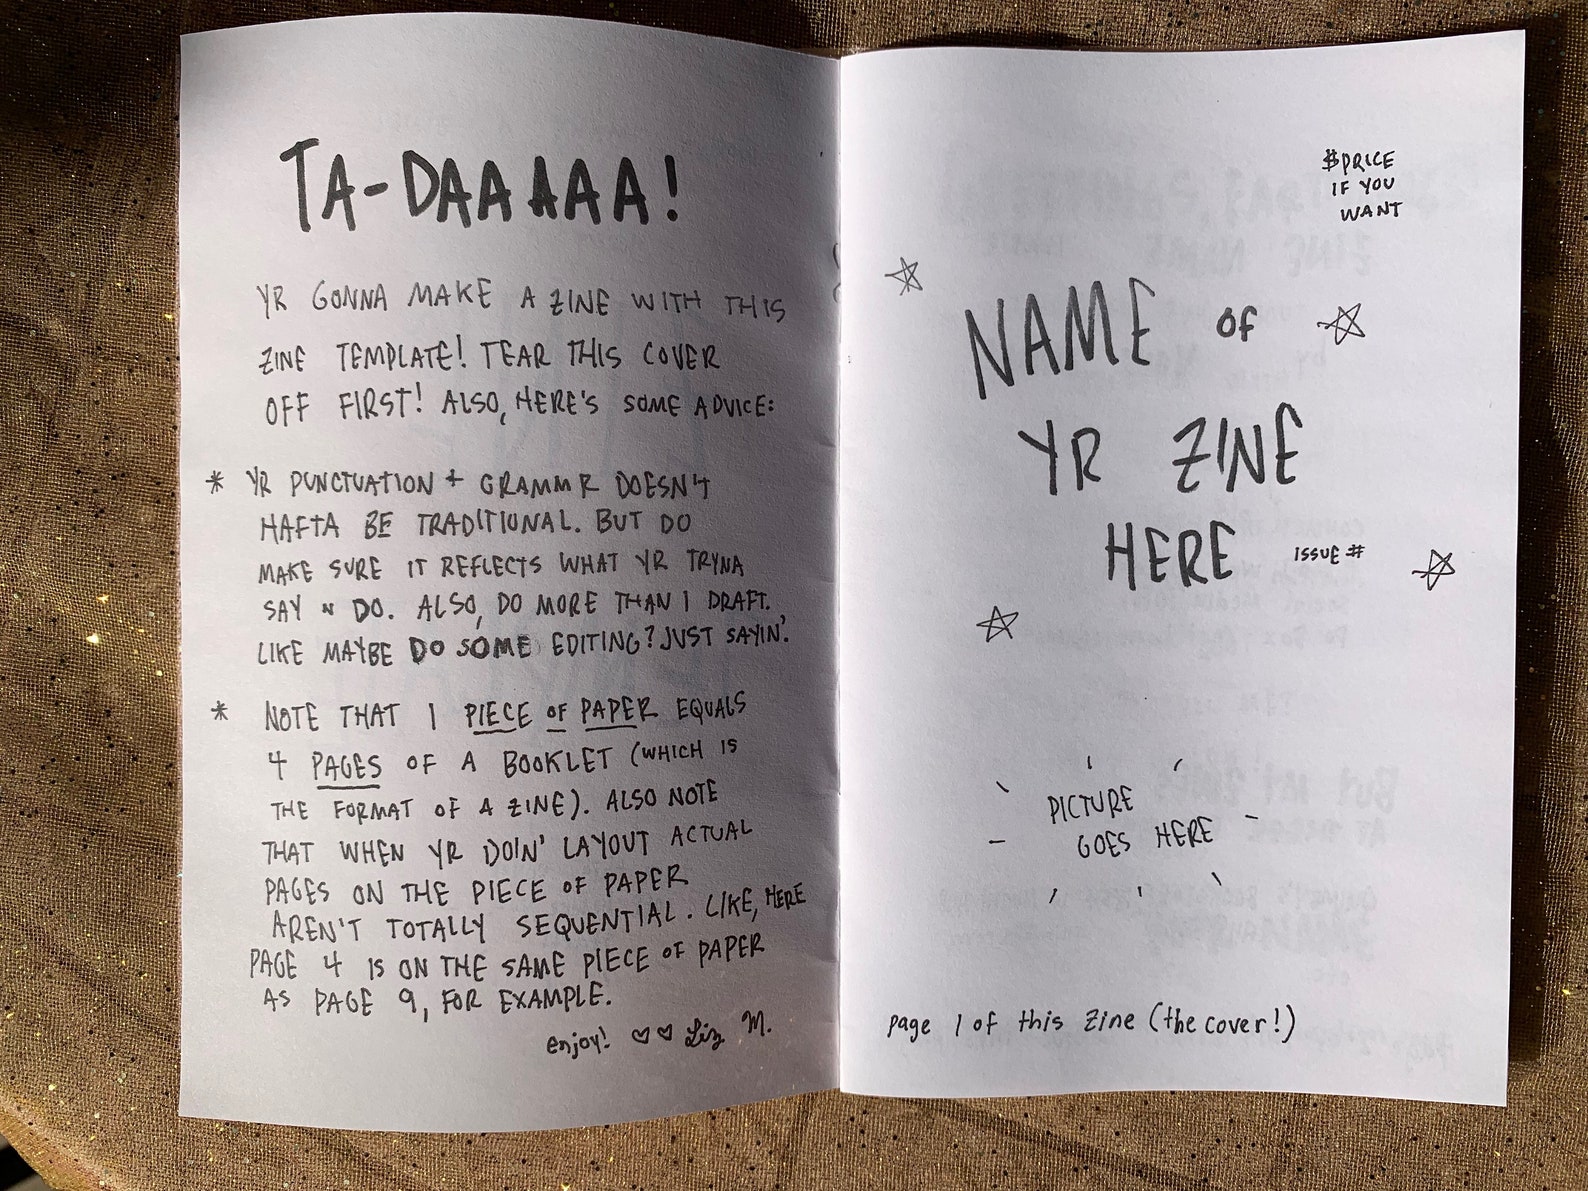 TA-DAAAAA!
YR GONNA MAKE A ZINE WITH THIS
ZINE TEMPLATE! TEAR THIS COVER
OFF FIRST! ALSO, HERE'S SOME ADVICE:
* YR PUNCTUATION + GRAMMR DOESN'T
HAFTA BE TRADITIONAL. BUT DO
MAKE SURE IT REFLECTS WHAT YR TRYNA
SAY N DO. ALSO, DO MORE THAN 1 DRAFT.
LIKE MAYBE DO SOME EDITING? JUST SAYIN'.
* NOTE THAT 1 PIECE OF PAPER EQUALS
4 PAGES OF A BOOKLET (WHICH IS
THE FORMAT OF A ZINE). ALSO NOTE
THAT WHEN YR DOIN' LAYOUT ACTUAL
PAGES ON THE PIECE OF PAPER
AREN'T TOTALLY SEQUENTIAL. LIKE, HERE
PAGE 4 IS ON THE SAME PIECE OF PAPER
AS PAGE 9, FOR EXAMPLE.
enjoy! ♡♡ Liz M.
$PRICE
IF YOU
WANT
NAME OF
YR ZINE
HERE ISSUE #
PICTURE
GOES HERE
page 1 of this zine (the cover!)